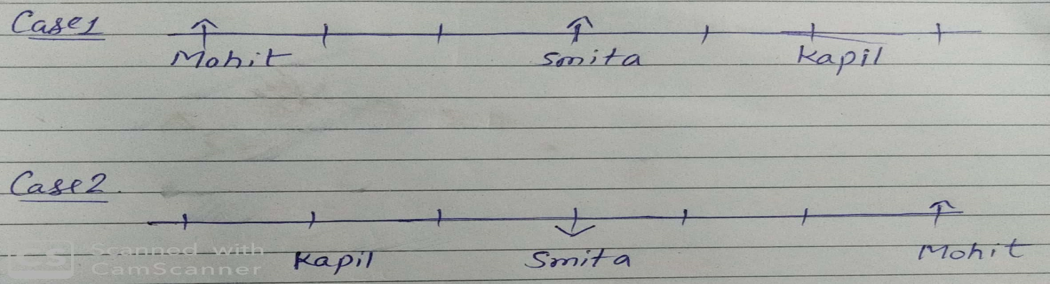 Case1
Mohit Smita Kapil
Case2.
Kapil Smita Mohit
CS Scanned with
CamScanner